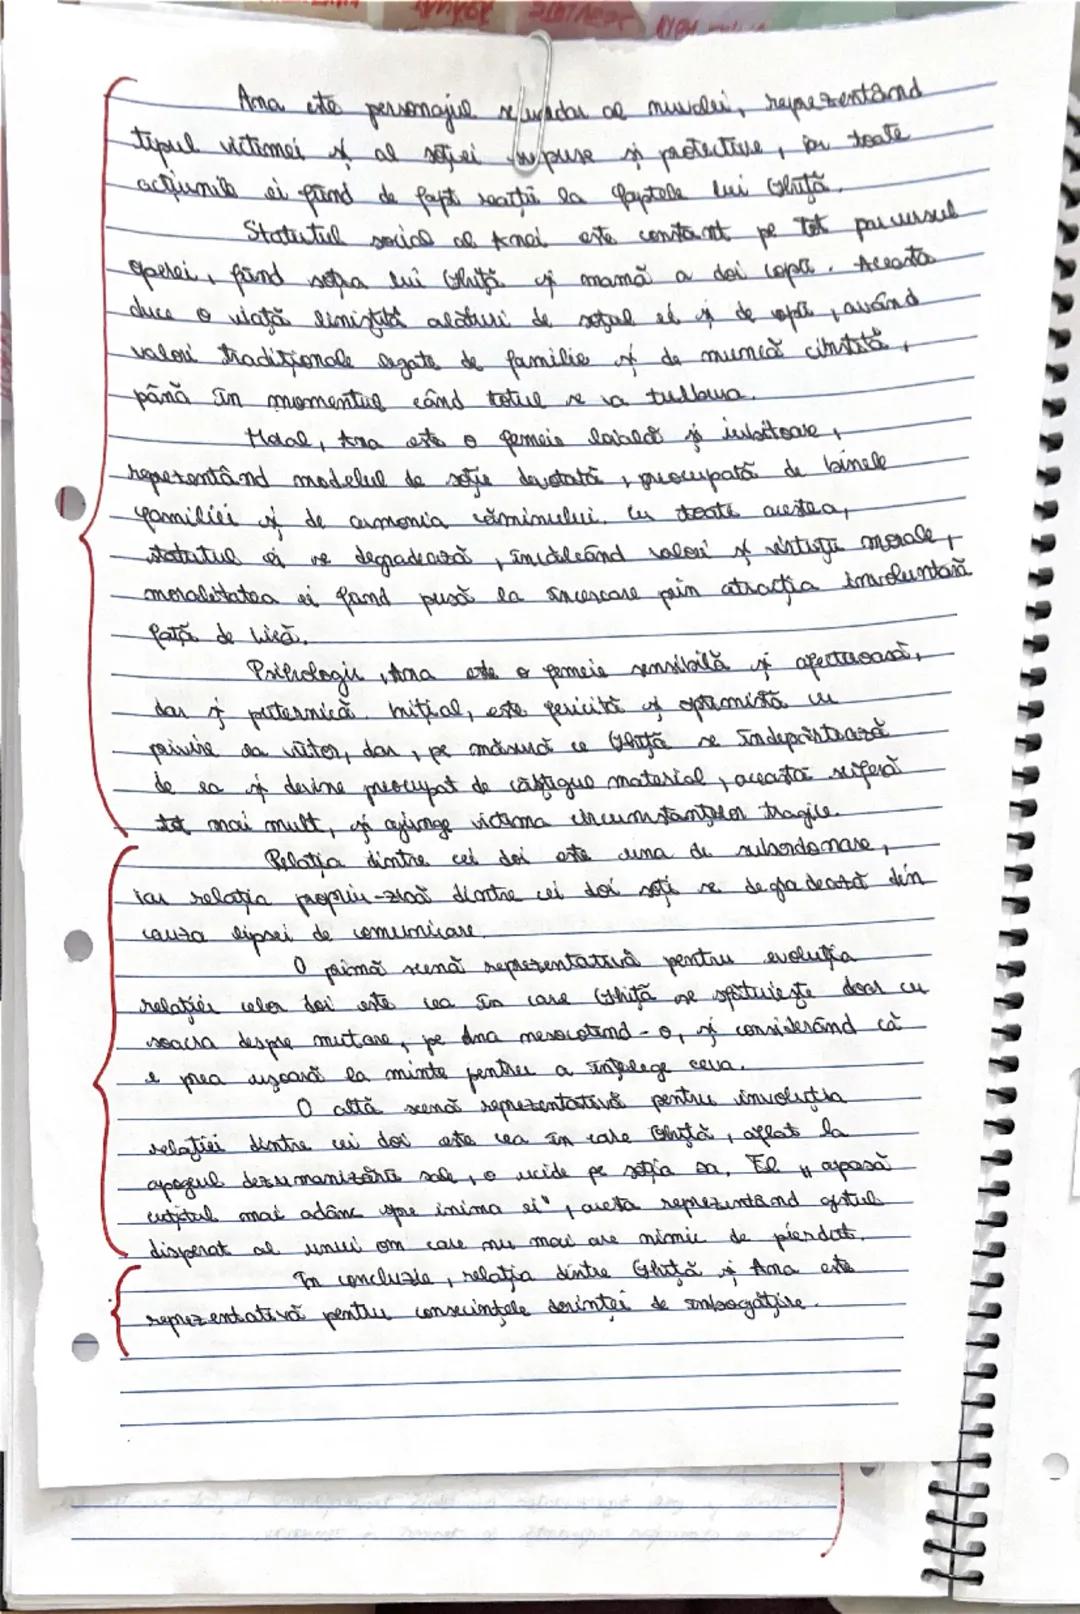 Ana este personajul secundar al nuvelei, reprezentând
tipul victimei și al soției supuse și protective, în toate
acțiunile ei fiind de fapt reacții la faptele lui Ghiță.
Statutul social al Anei este constant pe tot parcursul
operei, fiind soția lui Ghiță și mamă a doi copii. Aceasta
duce o viață liniștită alături de soțul ei și de copii, având
valori tradiționale legate de familie și de muncă cinstită,
până în momentul când totul se va tulbura.
Moral, Ana este o femeie loială și iubitoare,
reprezentând modelul de soție devotată, preocupată de binele
familiei și de armonia căminului. Cu toate acestea,
statutul ei se degradează, încălcând valori și virtuți morale,
moralitatea ei fiind pusă la încercare prin atracția involuntară
față de Lică.
Psihologic, Ana este o femeie sensibilă și afectuoasă,
dar și puternică. Inițial, este fericită și optimistă cu
privire la viitor, dar, pe măsură ce Ghiță se îndepărtează
de ea și devine preocupat de câștigul material, aceasta suferă
tot mai mult, și ajunge victima circumstanțelor tragice.
Relația dintre cei doi este una de subordonare,
iar relația propriu-zisă dintre cei doi soți se degradează din
cauza lipsei de comunicare.
O primă scenă reprezentativă pentru evoluția
relației celor doi este cea în care Ghiță se sfătuiește doar cu
soacra despre mutare, pe Ana nesocotind-o, și considerând că
e prea ușoară la minte pentru a înțelege ceva.
O altă scenă reprezentativă pentru involuția
relației dintre cei doi este cea în care Ghiță, aflat la
apogeul dezumanizării sale, o ucide pe soția sa. El „apasă
cuțitul mai adânc spre inima ei", acesta reprezentând gestul
disperat al unui om care nu mai are nimic de pierdut.
În concluzie, relația dintre Ghiță și Ana este
reprezentativă pentru consecințele dorinței de îmbogățire.